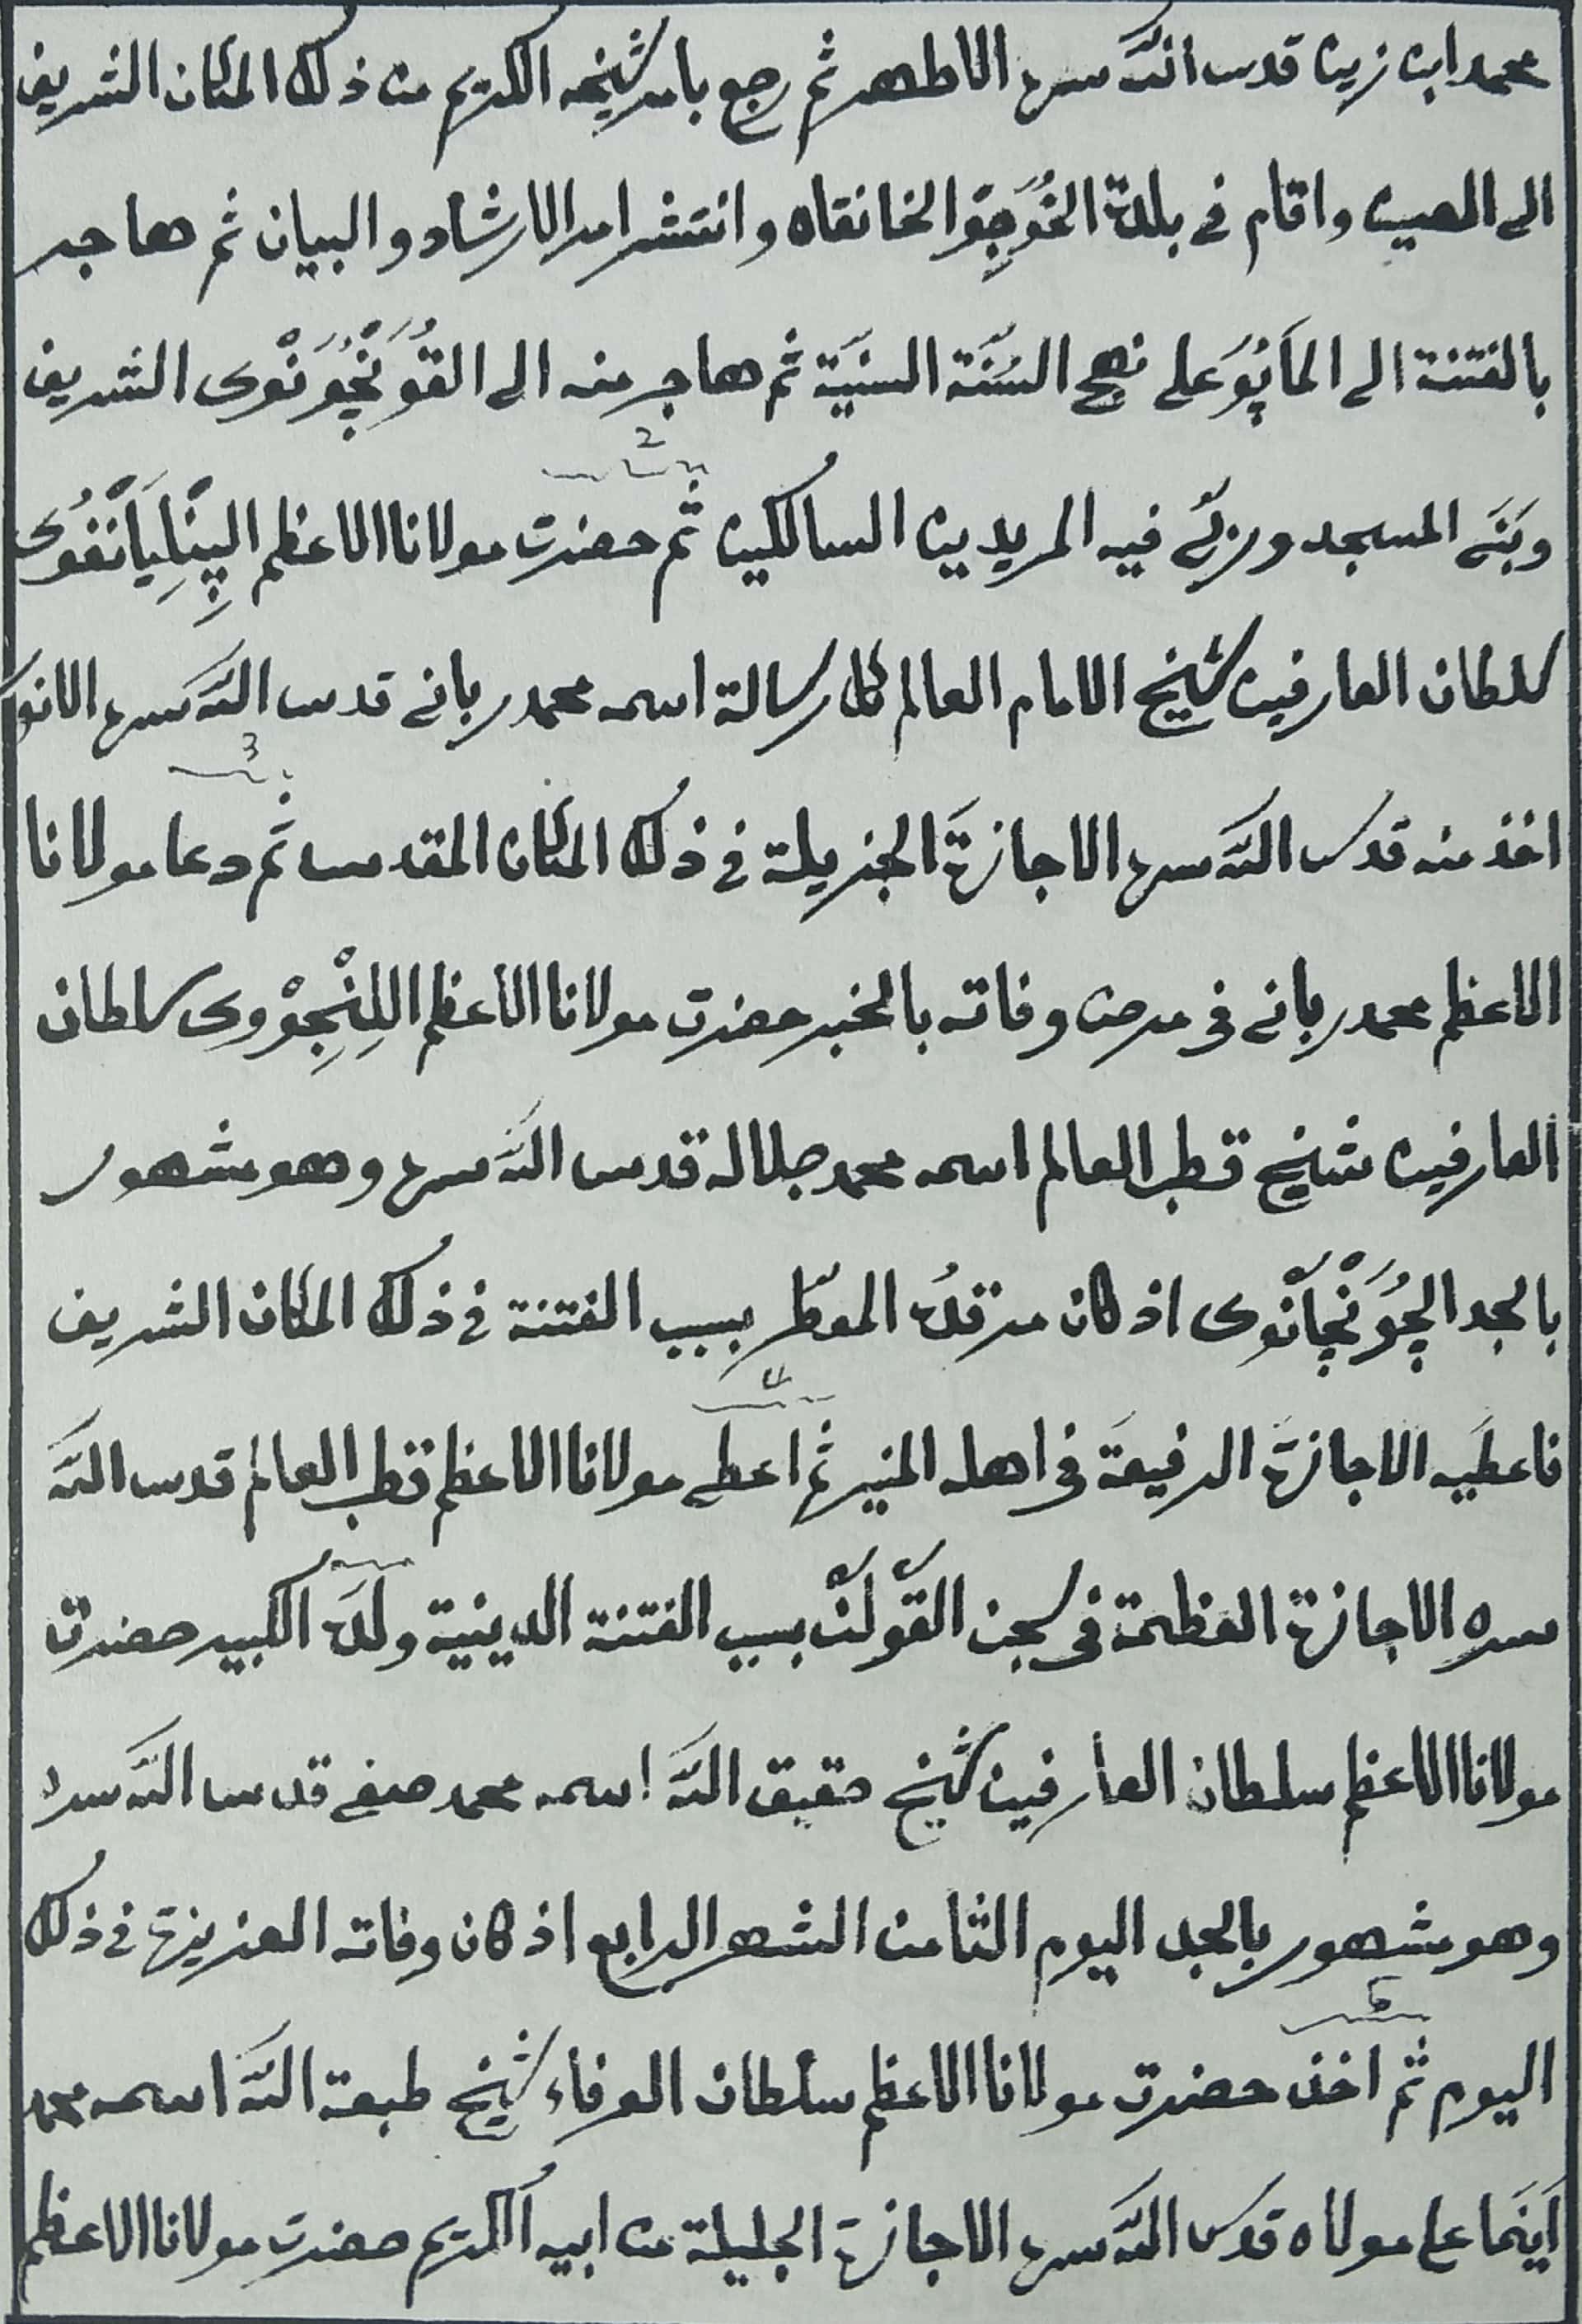 محمد ابن زين قدس الله سره الاطهر ثم رجع بامر شيخه الكريم من ذلك المكان الشريف
الى الصين واقام فى بلدة الخُوَجِوَ الخانقاه وانتشر امر الارشاد والبيان ثم هاجر
بالفتنة الى المَاپُوَ على نهج السُنَّة السنيَة ثم هاجر منه الى القُوَنْچُوَنْوى الشريف
2
وبَنَى المسجد وربّى فيه المريدين السالكين ثم حضرت مولانا الاعظم
سلطان العارفين شيخ الامام العالم كل رسالة اسمه محمد ربانى قدس الله سره الانور
3
اخذ منه قدس الله سره الاجازةَ الجزيلة فى ذلك المكان المقدس ثم دعا مولانا
الاعظم محمد ربانى فى مرض وفاته بالخبر حضرت مولانا الاعظم اللِنْجِوْوى سلطان
العارفين شيخ قطب العالم اسمه محمد جلاله قدس الله سره وهو مشهور
بالجد الچُوَنْچَانْوى اذ كان مرقدُه المعطّر بسبب الفتنة فى ذلك المكان الشريف
فاعطَيه الاجازةَ الرفيعةَ فى اهله المنير ثم اعطى مولانا الاعظم قطب العالم قدس الله
سره الاجازة العظمة فى سجن القَوَلَنْ بسبب الفتنة الدينية ولدَه الكبير حضرت
مولانا الاعظم سلطان العارفين شيخ حقيق الله اسمه محمد صفى قدس الله سره
وهو مشهور بالجد اليوم الثامن الشهر الرابع اذ كان وفاته العزيزة فى ذلك
اليوم ثم اخذ حضرت مولانا الاعظم سلطان العرفاء شيخ طبعة الله اسمه محمد
اَينَما على مولاه قدس الله سره الاجازة الجليلة من ابيه الكريم حضرت مولانا الاعظم